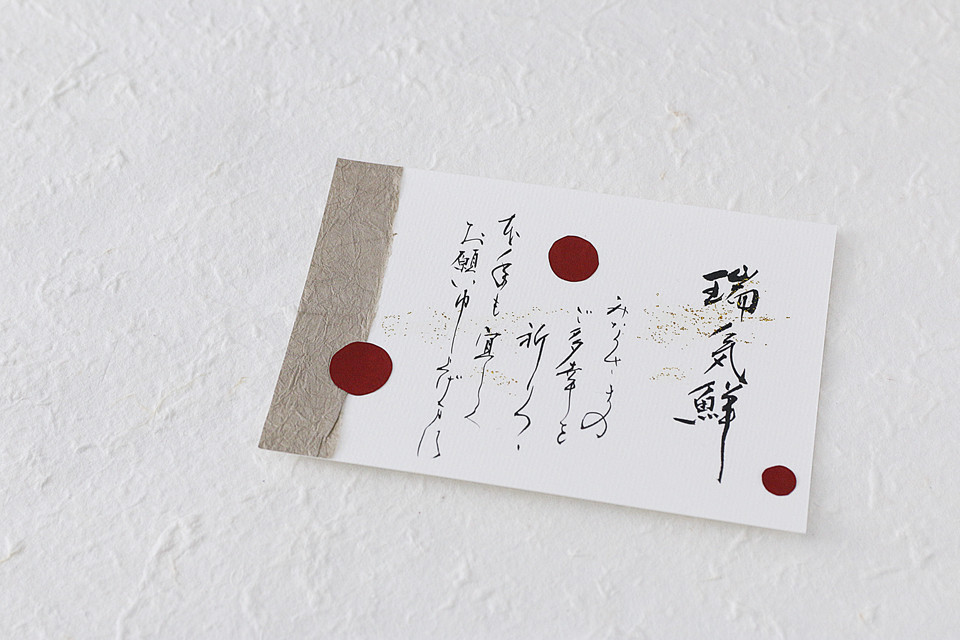 瑞気鮮
みなさまの
ご多幸を
祈りつつ
本年も宜しく
お願い申し上げます